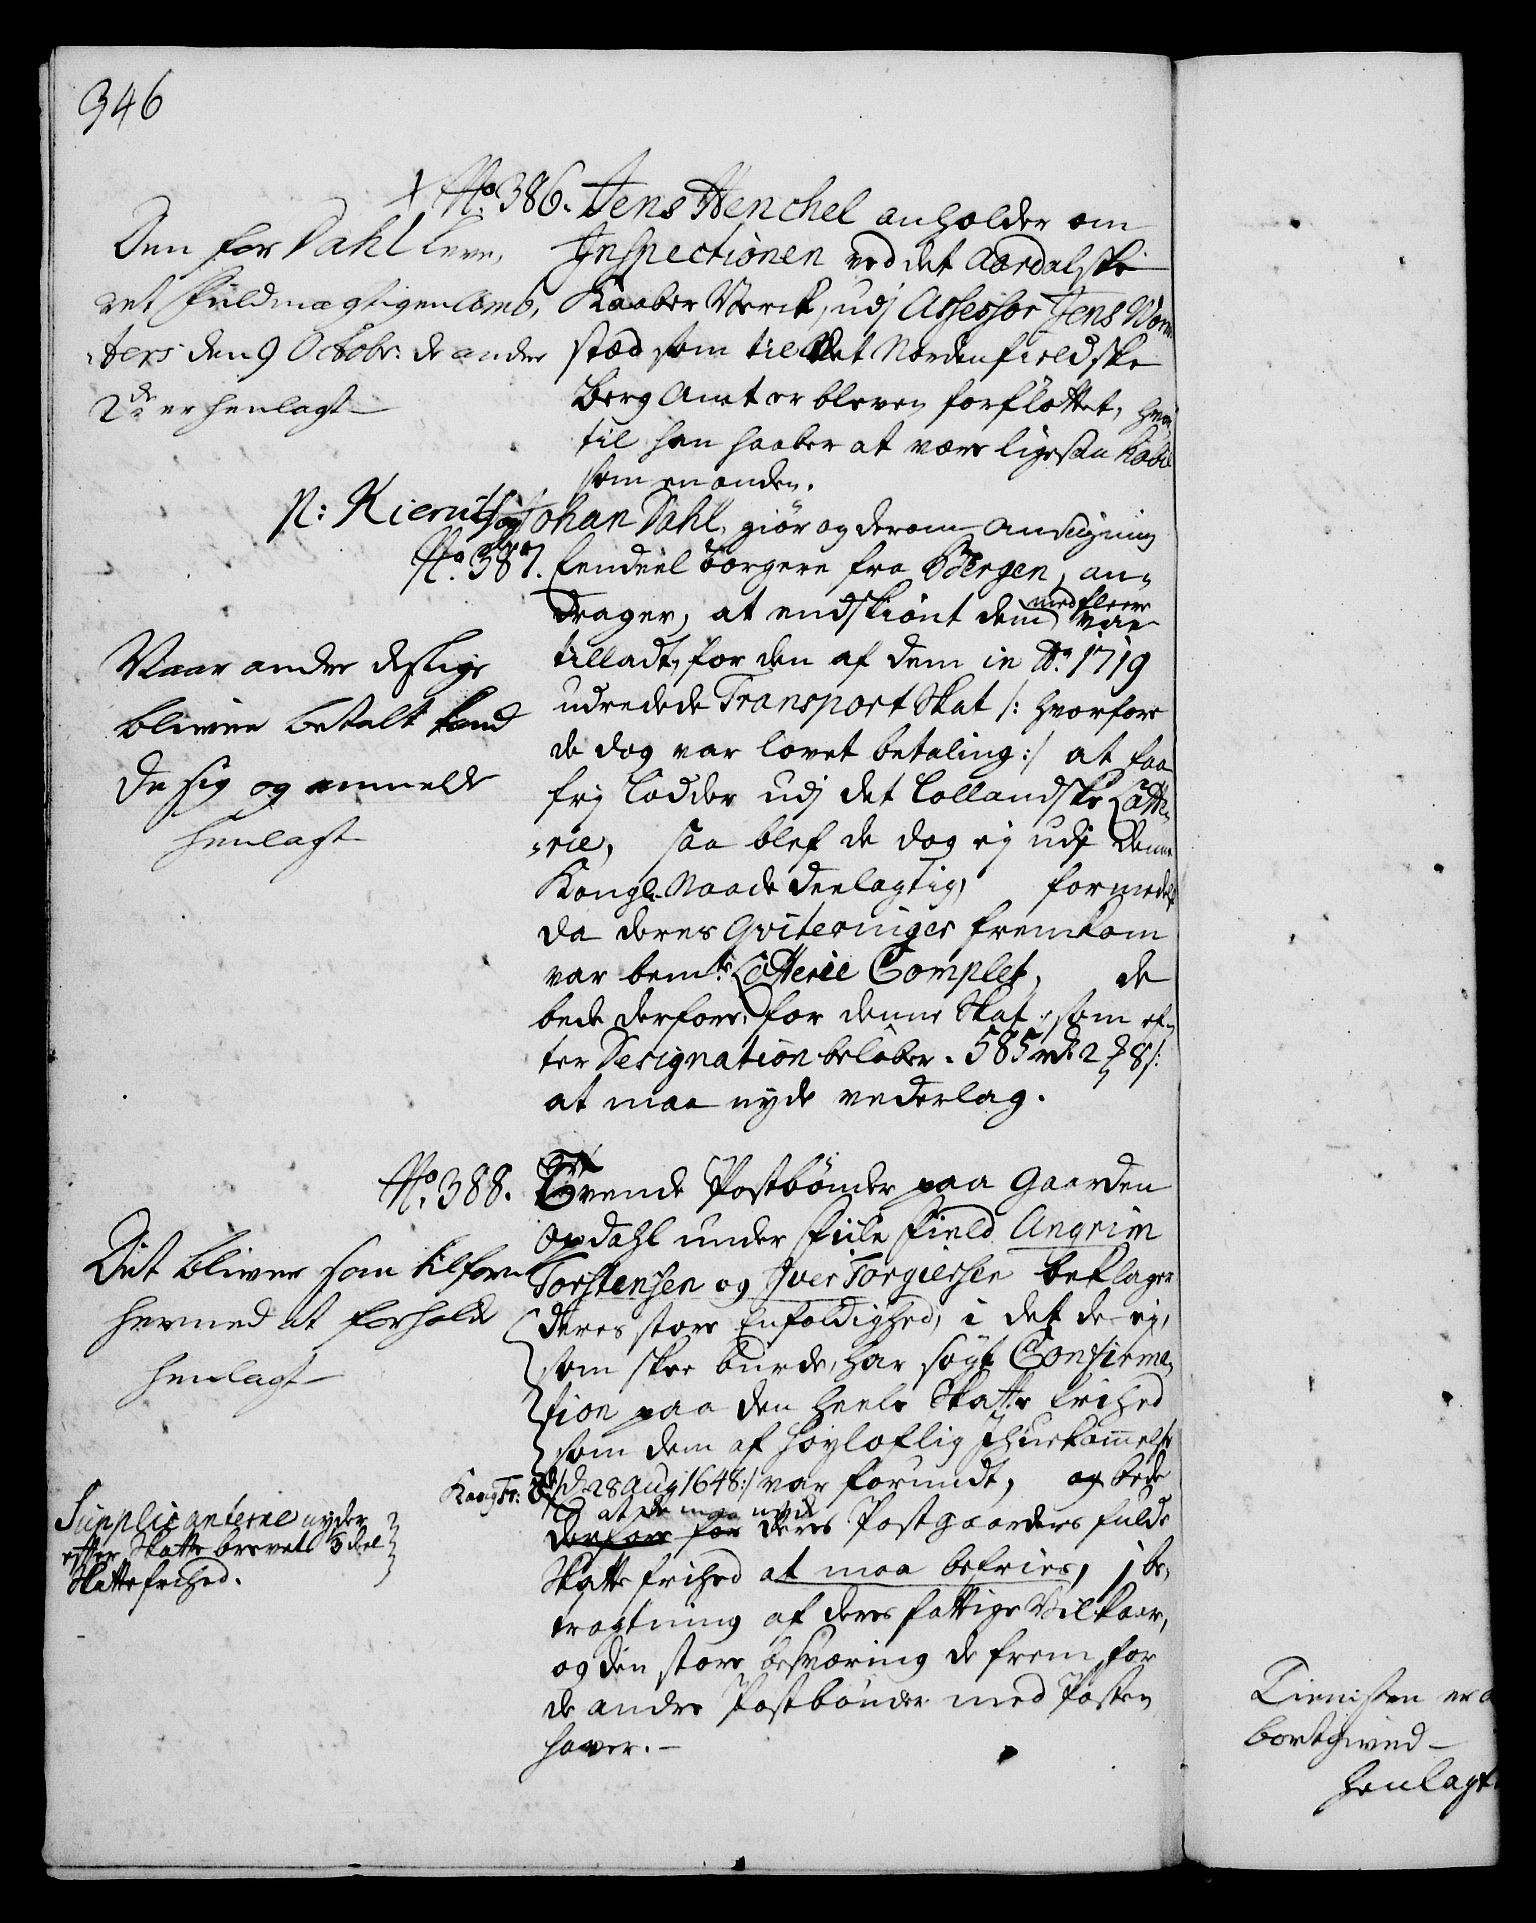 346
N.o 386. Jens Henchel anholder om
Inspectionen ved det Aardalske
Kaaber Værck, udj Assessor Jens
stæd som til det Nordenfieldske
Berg Amt er bleven forfløttet, hvor
til han haaber at være ligesaa habil
som en anden.
Den for Dahl leve-
ret fuldmægtigen
den 9 Octobr: de andre
2de er henlagt
N: og Johan Dahl, giør og derom Ansøgning
N.o 387. Eendeel borgere fra Bergen, an-
drager, at endskiønt dem med fleere var
tilladt, for den af dem in Ao. 1719
udredede Transport Skat /: hvorfore
de dog var lovet betaling :/ at faa
frj Lodder udj det Lollandske Lotte-
rie, saa blef de dog ej udj denne
Kongl. Naade deelagtig, formedelst
da deres Qviteringer fremkom
var bemte Lotterie Complet, de
bede derfore, for denne Skat, som ef-
ter Designation beløber 585 rd 2 8 s:
at maa nyde vederlag.
Naar andre deslige
bliver betalt kand
de sig og anmelde
henlagt
N.o 388. Tvende Postbønder paa Gaarden
Opdahl under Fiile Field Angrim
Torstensen og Iver Torgiersen beklager
deres store Enfoldighed, i det de ej,
som skee burde, har søgt Confirma-
tion paa den heele Skatte frihed
som dem af høyloflig Ihukommelse
Kong Fr: 3de /d. 28 Aug 1648:/ var forundt, og bede
at de maa nyde
derfore for deres Postgaarders fulde
Skatte frihed at maa befries, j be-
tragtning af deres fattige Vilkaar,
og den store besværing de frem for
de andre Postbønder med Posten
haver.
Det bliver som tilforn
hermed at forholde
henlagt
Supplicanterne nyder
efter Skatte brevet deel
Skatte frihed.
Tienisten er
bortgived
henlagt